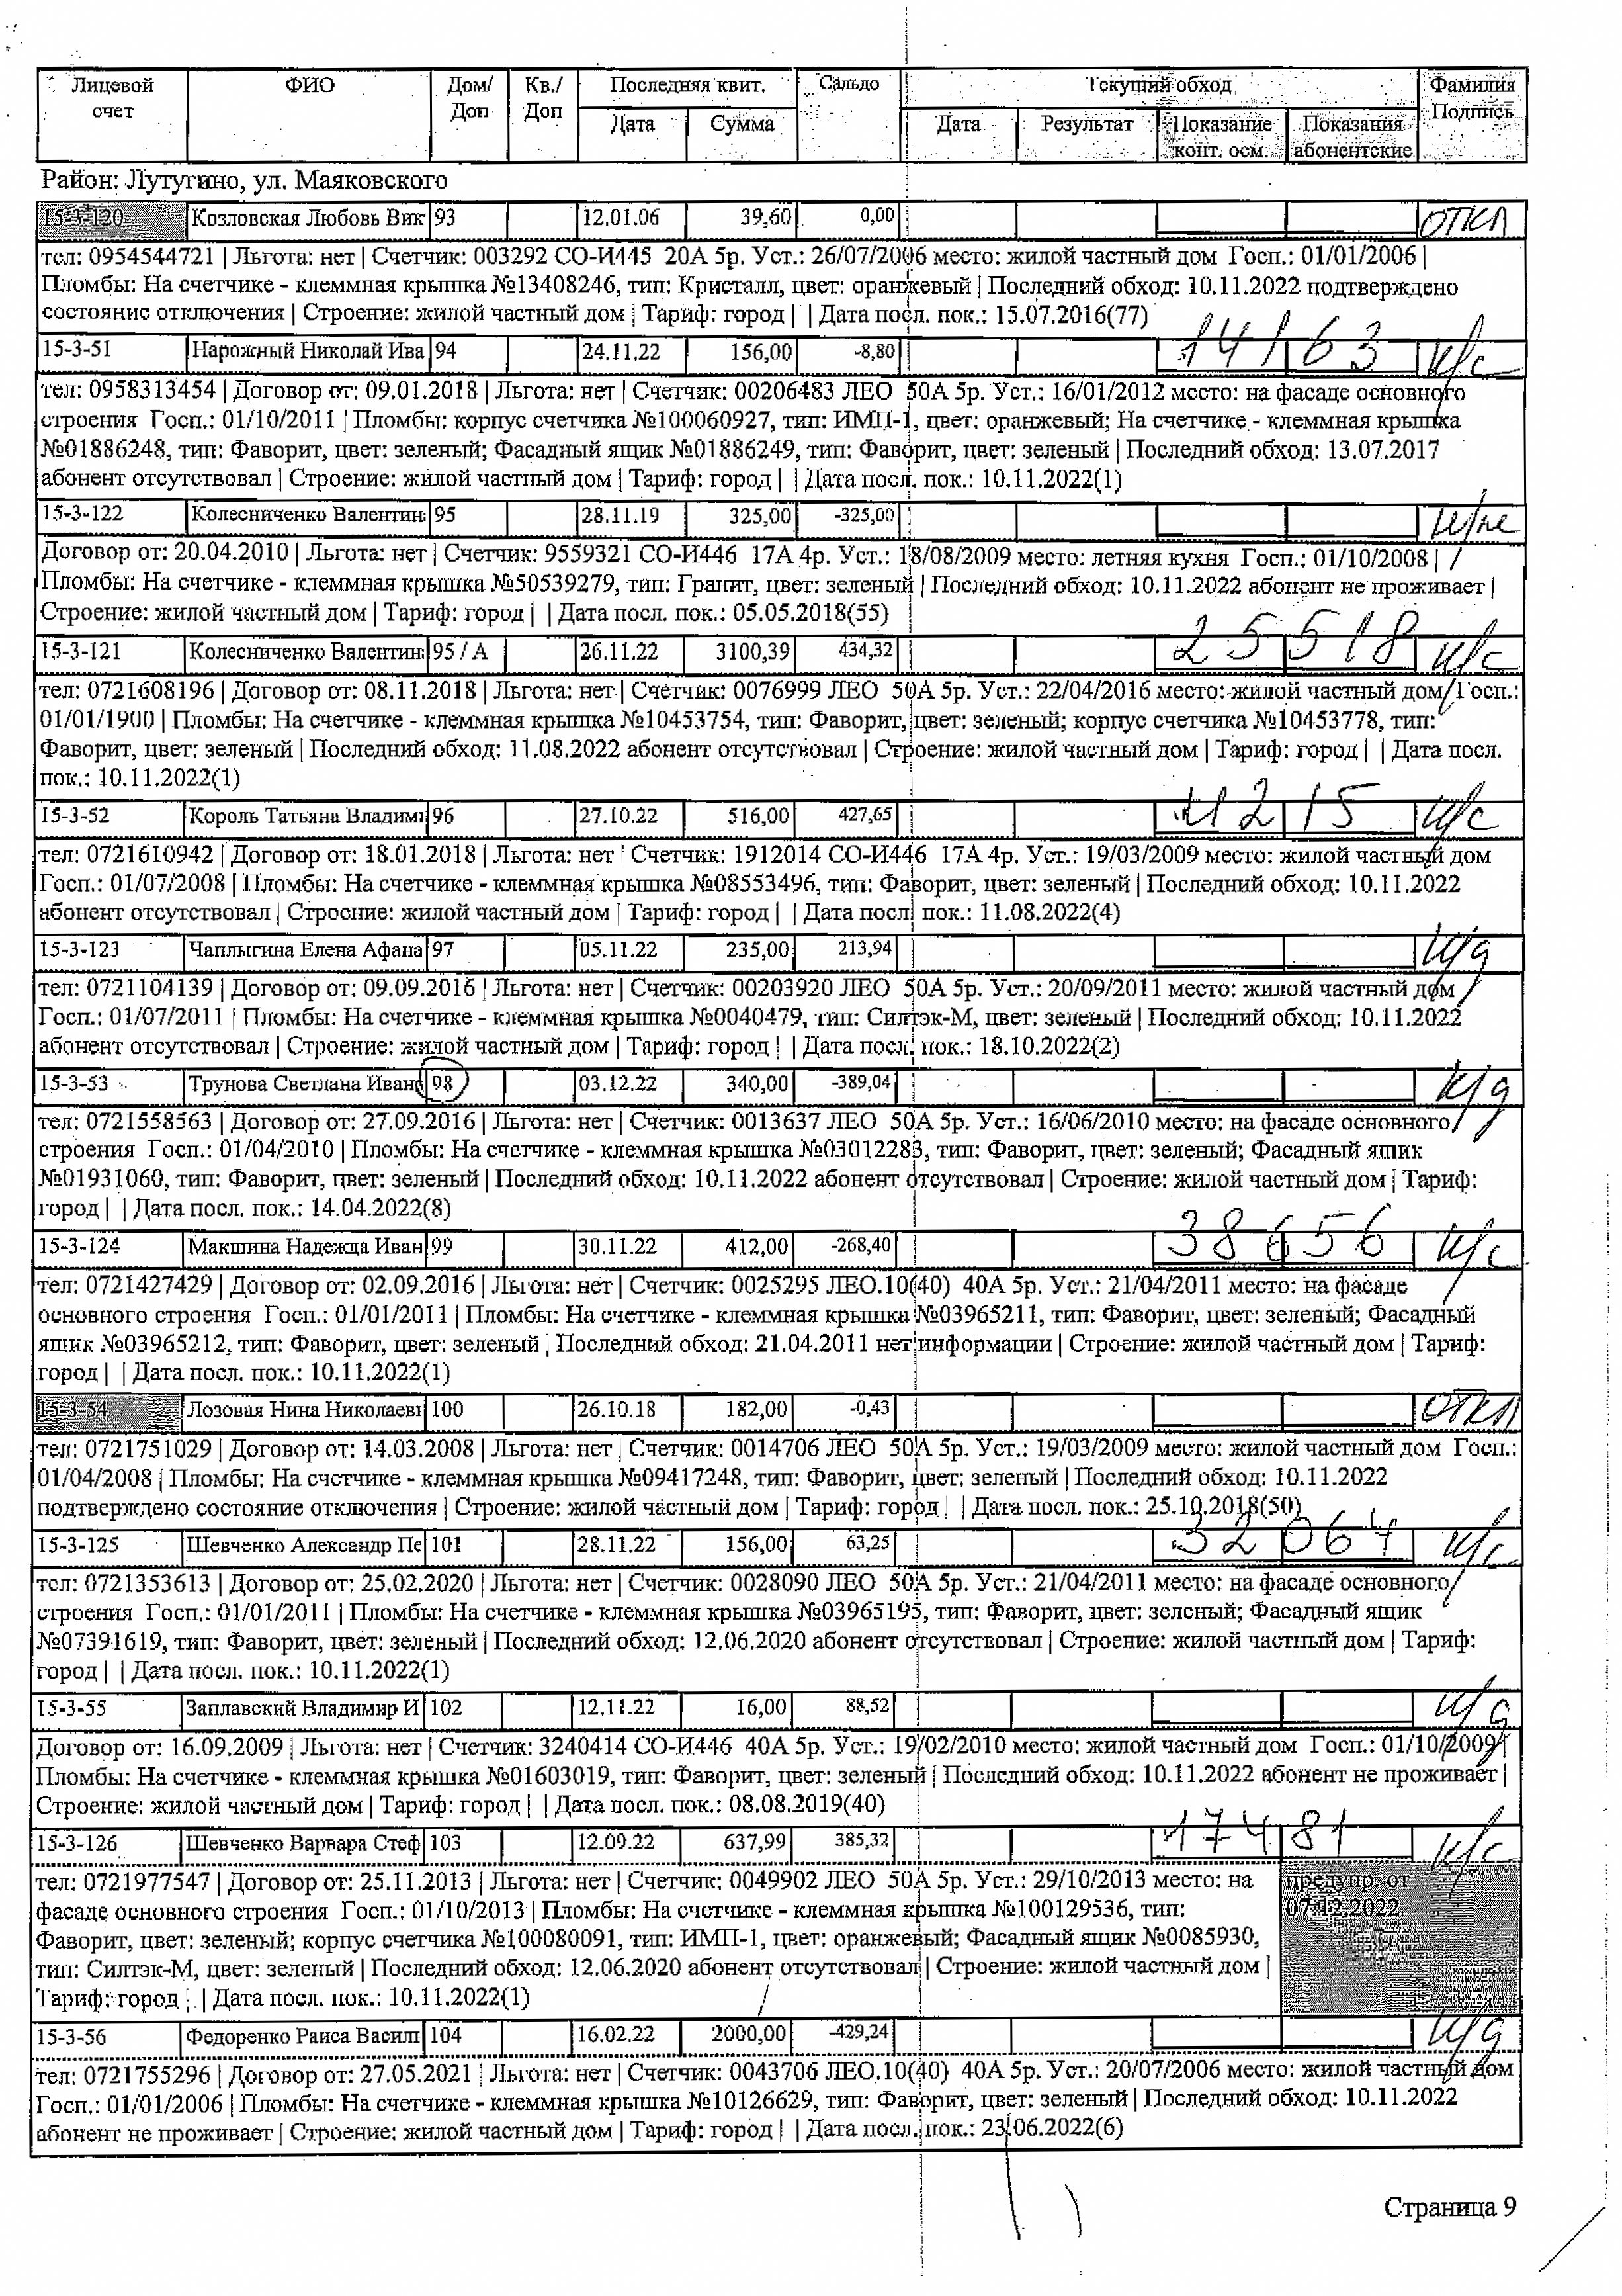 Лицевой счет | ФИО | Дом/ Доп | Кв./ Доп | Последняя квит. | Сальдо | Текущий обход | Фамилия Подпись
Дата | Сумма | Дата | Результат | Показание конт. осм. | Показания абонентские
Район: Лутугино, ул. Маяковского
15-3-120 Козловская Любовь Вик 93 12.01.06 39,60 0,00 ОТКЛ
тел: 0954544721 | Льгота: нет | Счетчик: 003292 СО-И445 20А 5р. Уст.: 26/07/2006 место: жилой частный дом Госп.: 01/01/2006 |
Пломбы: На счетчике - клеммная крышка №13408246, тип: Кристалл, цвет: оранжевый | Последний обход: 10.11.2022 подтверждено
состояние отключения | Строение: жилой частный дом | Тариф: город | | Дата посл. пок.: 15.07.2016(77)
15-3-51 Нарожный Николай Ива 94 24.11.22 156,00 -8,80 14163 к/с
тел: 0958313454 | Договор от: 09.01.2018 | Льгота: нет | Счетчик: 00206483 ЛЕО 50А 5р. Уст.: 16/01/2012 место: на фасаде основного
строения Госп.: 01/10/2011 | Пломбы: корпус счетчика №100060927, тип: ИМП-1, цвет: оранжевый; На счетчике - клеммная крышка
№01886248, тип: Фаворит, цвет: зеленый; Фасадный ящик №01886249, тип: Фаворит, цвет: зеленый | Последний обход: 13.07.2017
абонент отсутствовал | Строение: жилой частный дом | Тариф: город | | Дата посл. пок.: 10.11.2022(1)
15-3-122 Колесниченко Валентин 95 28.11.19 325,00 -325,00
Договор от: 20.04.2010 | Льгота: нет | Счетчик: 9559321 СО-И446 17А 4р. Уст.: 18/08/2009 место: летняя кухня Госп.: 01/10/2008 |
Пломбы: На счетчике - клеммная крышка №50539279, тип: Гранит, цвет: зеленый | Последний обход: 10.11.2022 абонент не проживает |
Строение: жилой частный дом | Тариф: город | | Дата посл. пок.: 05.05.2018(55)
15-3-121 Колесниченко Валентин 95 / А 26.11.22 3100,39 434,32 25518 к/с
тел: 0721608196 | Договор от: 08.11.2018 | Льгота: нет | Счетчик: 0076999 ЛЕО 50А 5р. Уст.: 22/04/2016 место: жилой частный дом Госп.:
01/01/1900 | Пломбы: На счетчике - клеммная крышка №10453754, тип: Фаворит, цвет: зеленый; корпус счетчика №10453778, тип:
Фаворит, цвет: зеленый | Последний обход: 11.08.2022 абонент отсутствовал | Строение: жилой частный дом | Тариф: город | | Дата посл.
пок.: 10.11.2022(1)
15-3-52 Король Татьяна Владими 96 27.10.22 516,00 427,65 215 к/с
тел: 0721610942 | Договор от: 18.01.2018 | Льгота: нет | Счетчик: 1912014 СО-И446 17А 4р. Уст.: 19/03/2009 место: жилой частный дом
Госп.: 01/07/2008 | Пломбы: На счетчике - клеммная крышка №08553496, тип: Фаворит, цвет: зеленый | Последний обход: 10.11.2022
абонент отсутствовал | Строение: жилой частный дом | Тариф: город | | Дата посл. пок.: 11.08.2022(4)
15-3-123 Чаплыгина Елена Афана 97 05.11.22 235,00 213,94 н/д
тел: 0721104139 | Договор от: 09.09.2016 | Льгота: нет | Счетчик: 00203920 ЛЕО 50А 5р. Уст.: 20/09/2011 место: жилой частный дом
Госп.: 01/07/2011 | Пломбы: На счетчике - клеммная крышка №0040479, тип: Силтэк-М, цвет: зеленый | Последний обход: 10.11.2022
абонент отсутствовал | Строение: жилой частный дом | Тариф: город | | Дата посл. пок.: 18.10.2022(2)
15-3-53 Трунова Светлана Иванс 98 03.12.22 340,00 -389,04 н/д
тел: 0721558563 | Договор от: 27.09.2016 | Льгота: нет | Счетчик: 0013637 ЛЕО 50А 5р. Уст.: 16/06/2010 место: на фасаде основного
строения Госп.: 01/04/2010 | Пломбы: На счетчике - клеммная крышка №03012283, тип: Фаворит, цвет: зеленый; Фасадный ящик
№01931060, тип: Фаворит, цвет: зеленый | Последний обход: 10.11.2022 абонент отсутствовал | Строение: жилой частный дом | Тариф:
город | | Дата посл. пок.: 14.04.2022(8)
15-3-124 Макшина Надежда Иван 99 30.11.22 412,00 -268,40 38656 к/с
тел: 0721427429 | Договор от: 02.09.2016 | Льгота: нет | Счетчик: 0025295 ЛЕО.10(40) 40А 5р. Уст.: 21/04/2011 место: на фасаде
основного строения Госп.: 01/01/2011 | Пломбы: На счетчике - клеммная крышка №03965211, тип: Фаворит, цвет: зеленый; Фасадный
ящик №03965212, тип: Фаворит, цвет: зеленый | Последний обход: 21.04.2011 нет информации | Строение: жилой частный дом | Тариф:
город | | Дата посл. пок.: 10.11.2022(1)
15-3-54 Лозовая Нина Николаеві 100 26.10.18 182,00 -0,43 ОТКЛ
тел: 0721751029 | Договор от: 14.03.2008 | Льгота: нет | Счетчик: 0014706 ЛЕО 50А 5р. Уст.: 19/03/2009 место: жилой частный дом Госп.:
01/04/2008 | Пломбы: На счетчике - клеммная крышка №09417248, тип: Фаворит, цвет: зеленый | Последний обход: 10.11.2022
подтверждено состояние отключения | Строение: жилой частный дом | Тариф: город | | Дата посл. пок.: 25.10.2018(50)
15-3-125 Шевченко Александр Пе 101 28.11.22 156,00 63,25 32064 к/с
тел: 0721353613 | Договор от: 25.02.2020 | Льгота: нет | Счетчик: 0028090 ЛЕО 50А 5р. Уст.: 21/04/2011 место: на фасаде основного
строения Госп.: 01/01/2011 | Пломбы: На счетчике - клеммная крышка №03965195, тип: Фаворит, цвет: зеленый; Фасадный ящик
№07391619, тип: Фаворит, цвет: зеленый | Последний обход: 12.06.2020 абонент отсутствовал | Строение: жилой частный дом | Тариф:
город | | Дата посл. пок.: 10.11.2022(1)
15-3-55 Заплавский Владимир И 102 12.11.22 16,00 88,52 н/д
Договор от: 16.09.2009 | Льгота: нет | Счетчик: 3240414 СО-И446 40А 5р. Уст.: 19/02/2010 место: жилой частный дом Госп.: 01/10/2009 |
Пломбы: На счетчике - клеммная крышка №01603019, тип: Фаворит, цвет: зеленый | Последний обход: 10.11.2022 абонент не проживает |
Строение: жилой частный дом | Тариф: город | | Дата посл. пок.: 08.08.2019(40)
15-3-126 Шевченко Варвара Стеф 103 12.09.22 637,99 385,32 17481 к/с
тел: 0721977547 | Договор от: 25.11.2013 | Льгота: нет | Счетчик: 0049902 ЛЕО 50А 5р. Уст.: 29/10/2013 место: на
фасаде основного строения Госп.: 01/10/2013 | Пломбы: На счетчике - клеммная крышка №100129536, тип:
Фаворит, цвет: зеленый; корпус счетчика №100080091, тип: ИМП-1, цвет: оранжевый; Фасадный ящик №0085930,
тип: Силтэк-М, цвет: зеленый | Последний обход: 12.06.2020 абонент отсутствовал | Строение: жилой частный дом |
Тариф: город | | Дата посл. пок.: 10.11.2022(1)
предупр. от
07.12.2022
15-3-56 Федоренко Раиса Васил 104 16.02.22 2000,00 -429,24 н/д
тел: 0721755296 | Договор от: 27.05.2021 | Льгота: нет | Счетчик: 0043706 ЛЕО.10(40) 40А 5р. Уст.: 20/07/2006 место: жилой частный дом
Госп.: 01/01/2006 | Пломбы: На счетчике - клеммная крышка №10126629, тип: Фаворит, цвет: зеленый | Последний обход: 10.11.2022
абонент не проживает | Строение: жилой частный дом | Тариф: город | | Дата посл. пок.: 23.06.2022(6)
Страница 9